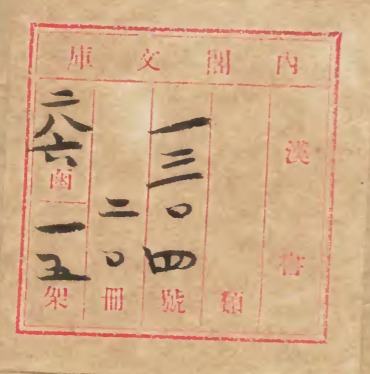 內閣文庫
漢書
類
一三〇四號
二〇冊
二八六函
一五架